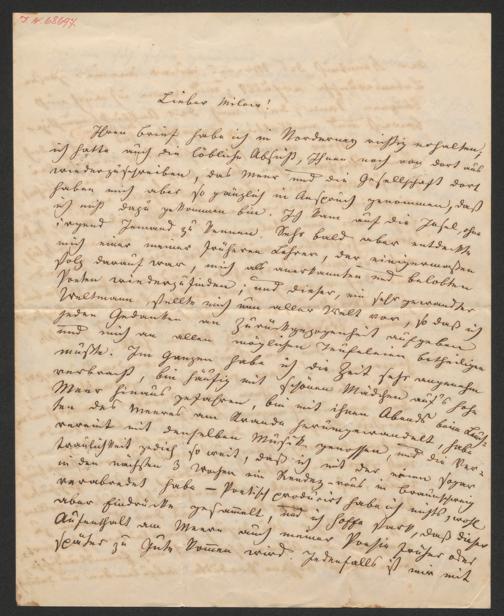 I.N. 68697.
Lieber Milow!
Ihren Brief habe ich in Norderney richtig erhalten,
ich hatte auch die löbliche Absicht, Ihnen noch von dort aus
wiederzuschreiben, das Meer und die Gesellschaft dort
haben mich aber so gänzlich in Anspruch genommen, daß
ich nicht dazu gekommen bin. Ich kam auf die Insel, ohne
irgend Jemand zu kennen. Sehr bald aber entdeckte
mich einer meiner früheren Lehrer, der einigermaßen
stolz darauf war, mich als anerkannten und belobten
Poeten wiederzufinden; und dieser, ein sehr gewandter
Weltmann, stellte mich nun aller Welt vor, so daß ich
jeden Gedanken an Zurückgezogenheit aufgeben
und mich an allen möglichen Teufeleien betheiligen
mußte. Im Ganzen habe ich die Zeit sehr angenehm
verbracht, bin häufig mit schönen Mädchen auf's hohe
Meer hinaus gefahren, bin mit ihnen Abends beim Leuch-
ten des Meeres am Strande herumgewandelt, habe
vereint mit denselben Musik genossen, und die Ver-
traulichkeit gedieh so weit, daß ich mit der einen sogar
in den nächsten 3 Wochen ein Rendez-vous in Braunschweig
verabredet habe — Poetisch producirt habe ich nichts, wohl
aber Eindrücke gesammelt, und ich hoffe stark, daß dieser
Aufenthalt am Meere auch meiner Poesie früher oder
später zu Gute kommen wird. Jedenfalls ist mir mit